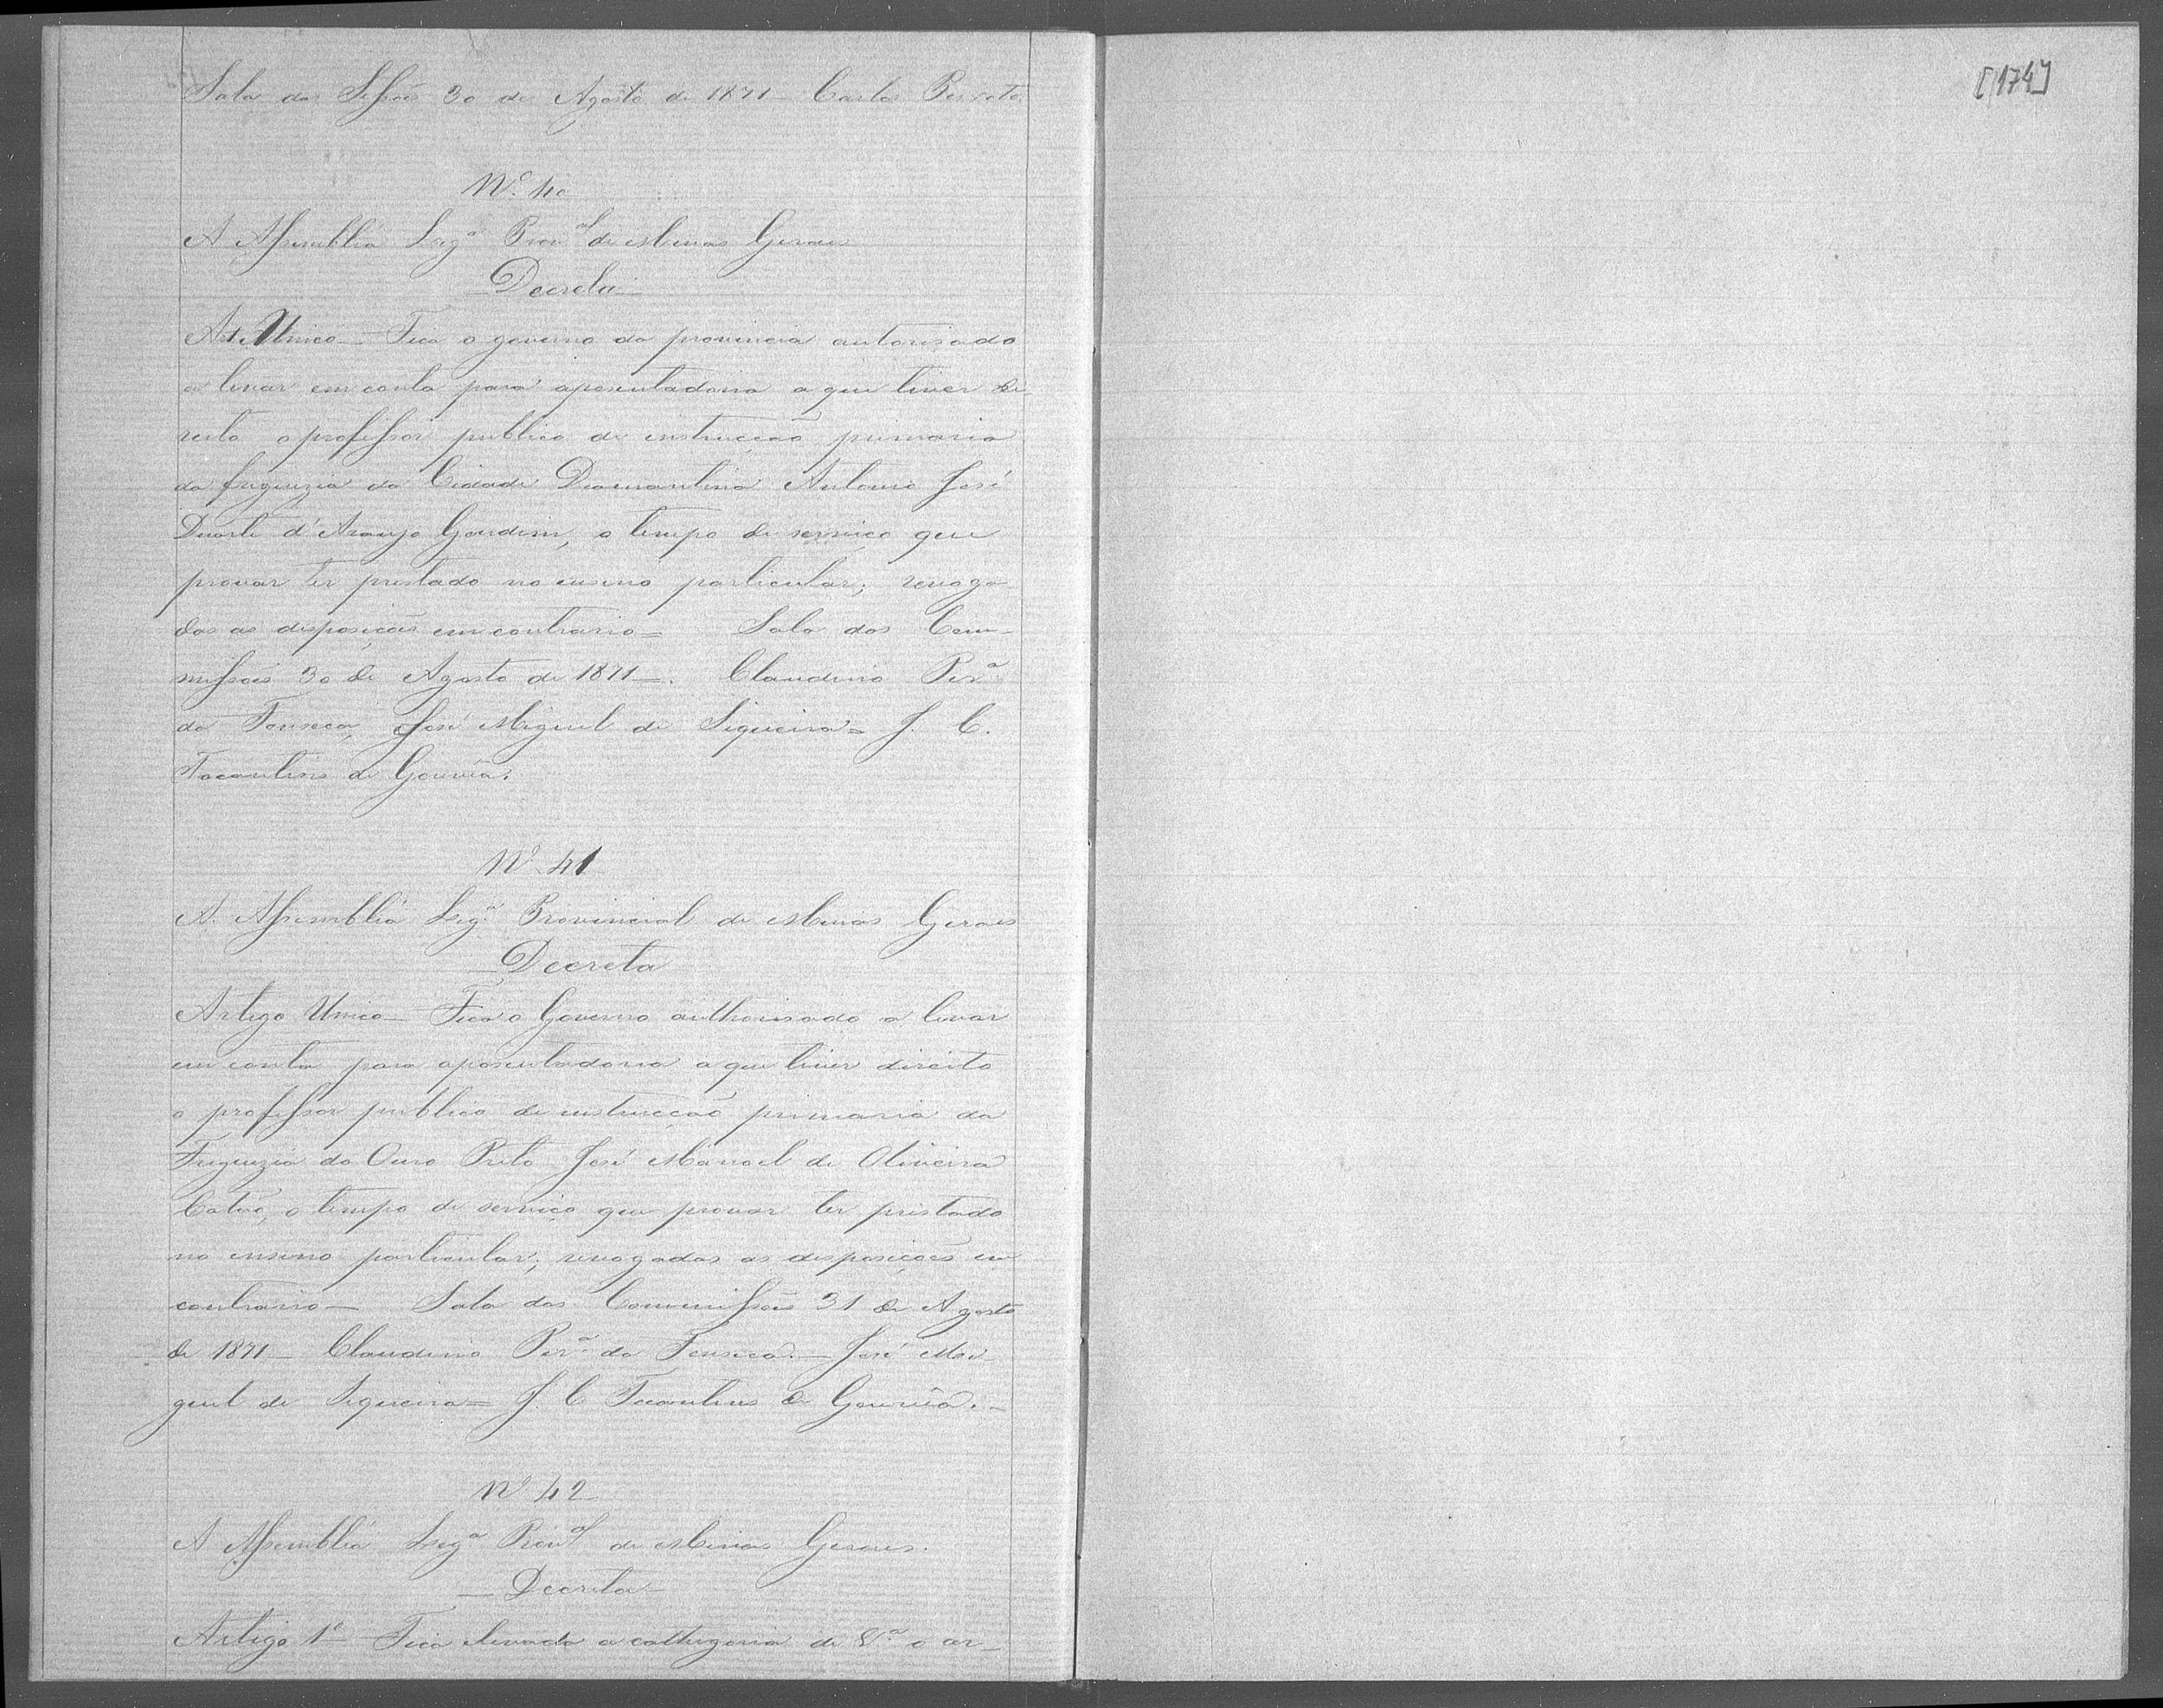 Sala das Sessões 30 de Agosto de 1871 - Carlos Peixoto
Nº 40
A Assembléa Legª Proval de Minas Geraes
Decreta
Art. Unico - Fica o governo da provincia autorisado
a levar em conta para aposentadoria a que tiver di-
reito o professor publico de instrucção primaria
da freguezia da Cidade Diamantina Antonio José
Duarte d'Araujo Gondim, o tempo de serviço que
provar ter prestado no ensino particular; revoga-
das as disposições em contrario = Sala das Com-
missões 30 de Agosto de 1871 -. Claudino Perª
da Fonseca, José Miguel de Siqueira = J. C.
Tocantins de Gouvêa.
Nº 41
A Assembléa Legª Provincial de Minas Geraes
Decreta
Artigo Unico - Fica o Governo authorisado a levar
em conta para aposentadoria a que tiver direito
o professor publico de instrucção primaria da
Freguezia do Ouro Preto José Manoel de Oliveira
Catão, o tempo de serviço que provar ter prestado
no ensino particular; revogadas as disposições em
contrario - Sala das Commissões 31 de Agosto
de 1871 - Claudino Perª da Fonseca. - José Mi-
guel de Siqueira = J. C Tocantins de Gouvêa. -
Nº 42
A Assembléa Legª Proval de Minas Geraes.
- Decreta -
Artigo 1º - Fica elevada a cathegoria de Vª o ar-
[174]